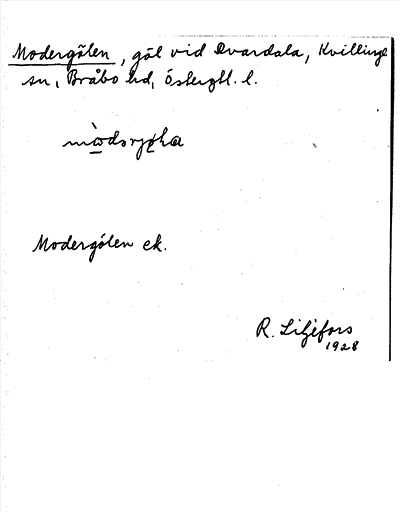 Modergölen, göl vid Dvardala, Kvillinge
sn, Bråbo hd, Östergtl. l.
Modergölen ek.
R. Liljefors
1928